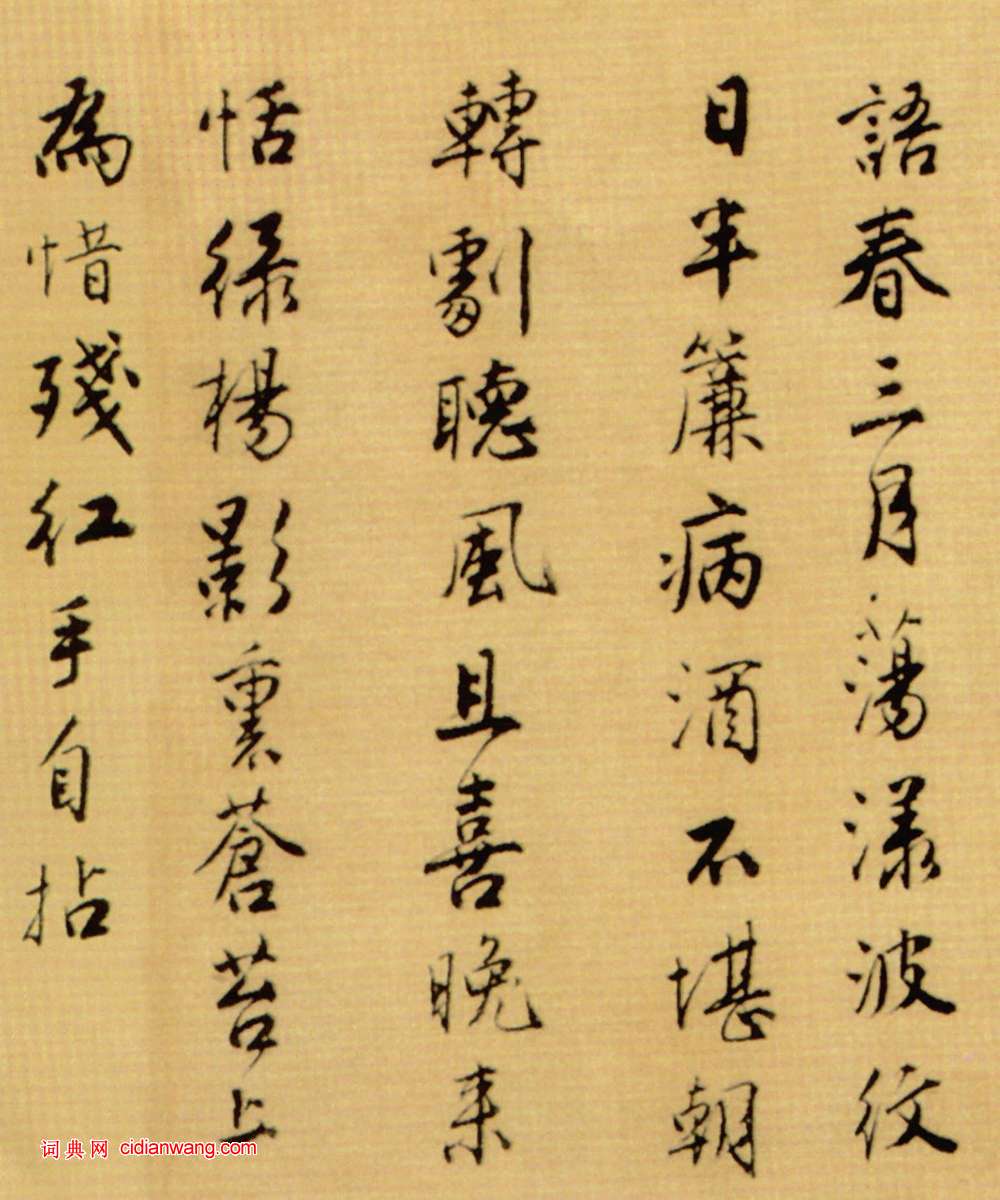 語春三月蕩漾波紋
日半簾病酒不堪朝
轉劇聽風且喜晚来
恬緑楊影裏蒼苔上
為惜殘紅手自拈
词典网 cidianwang.com